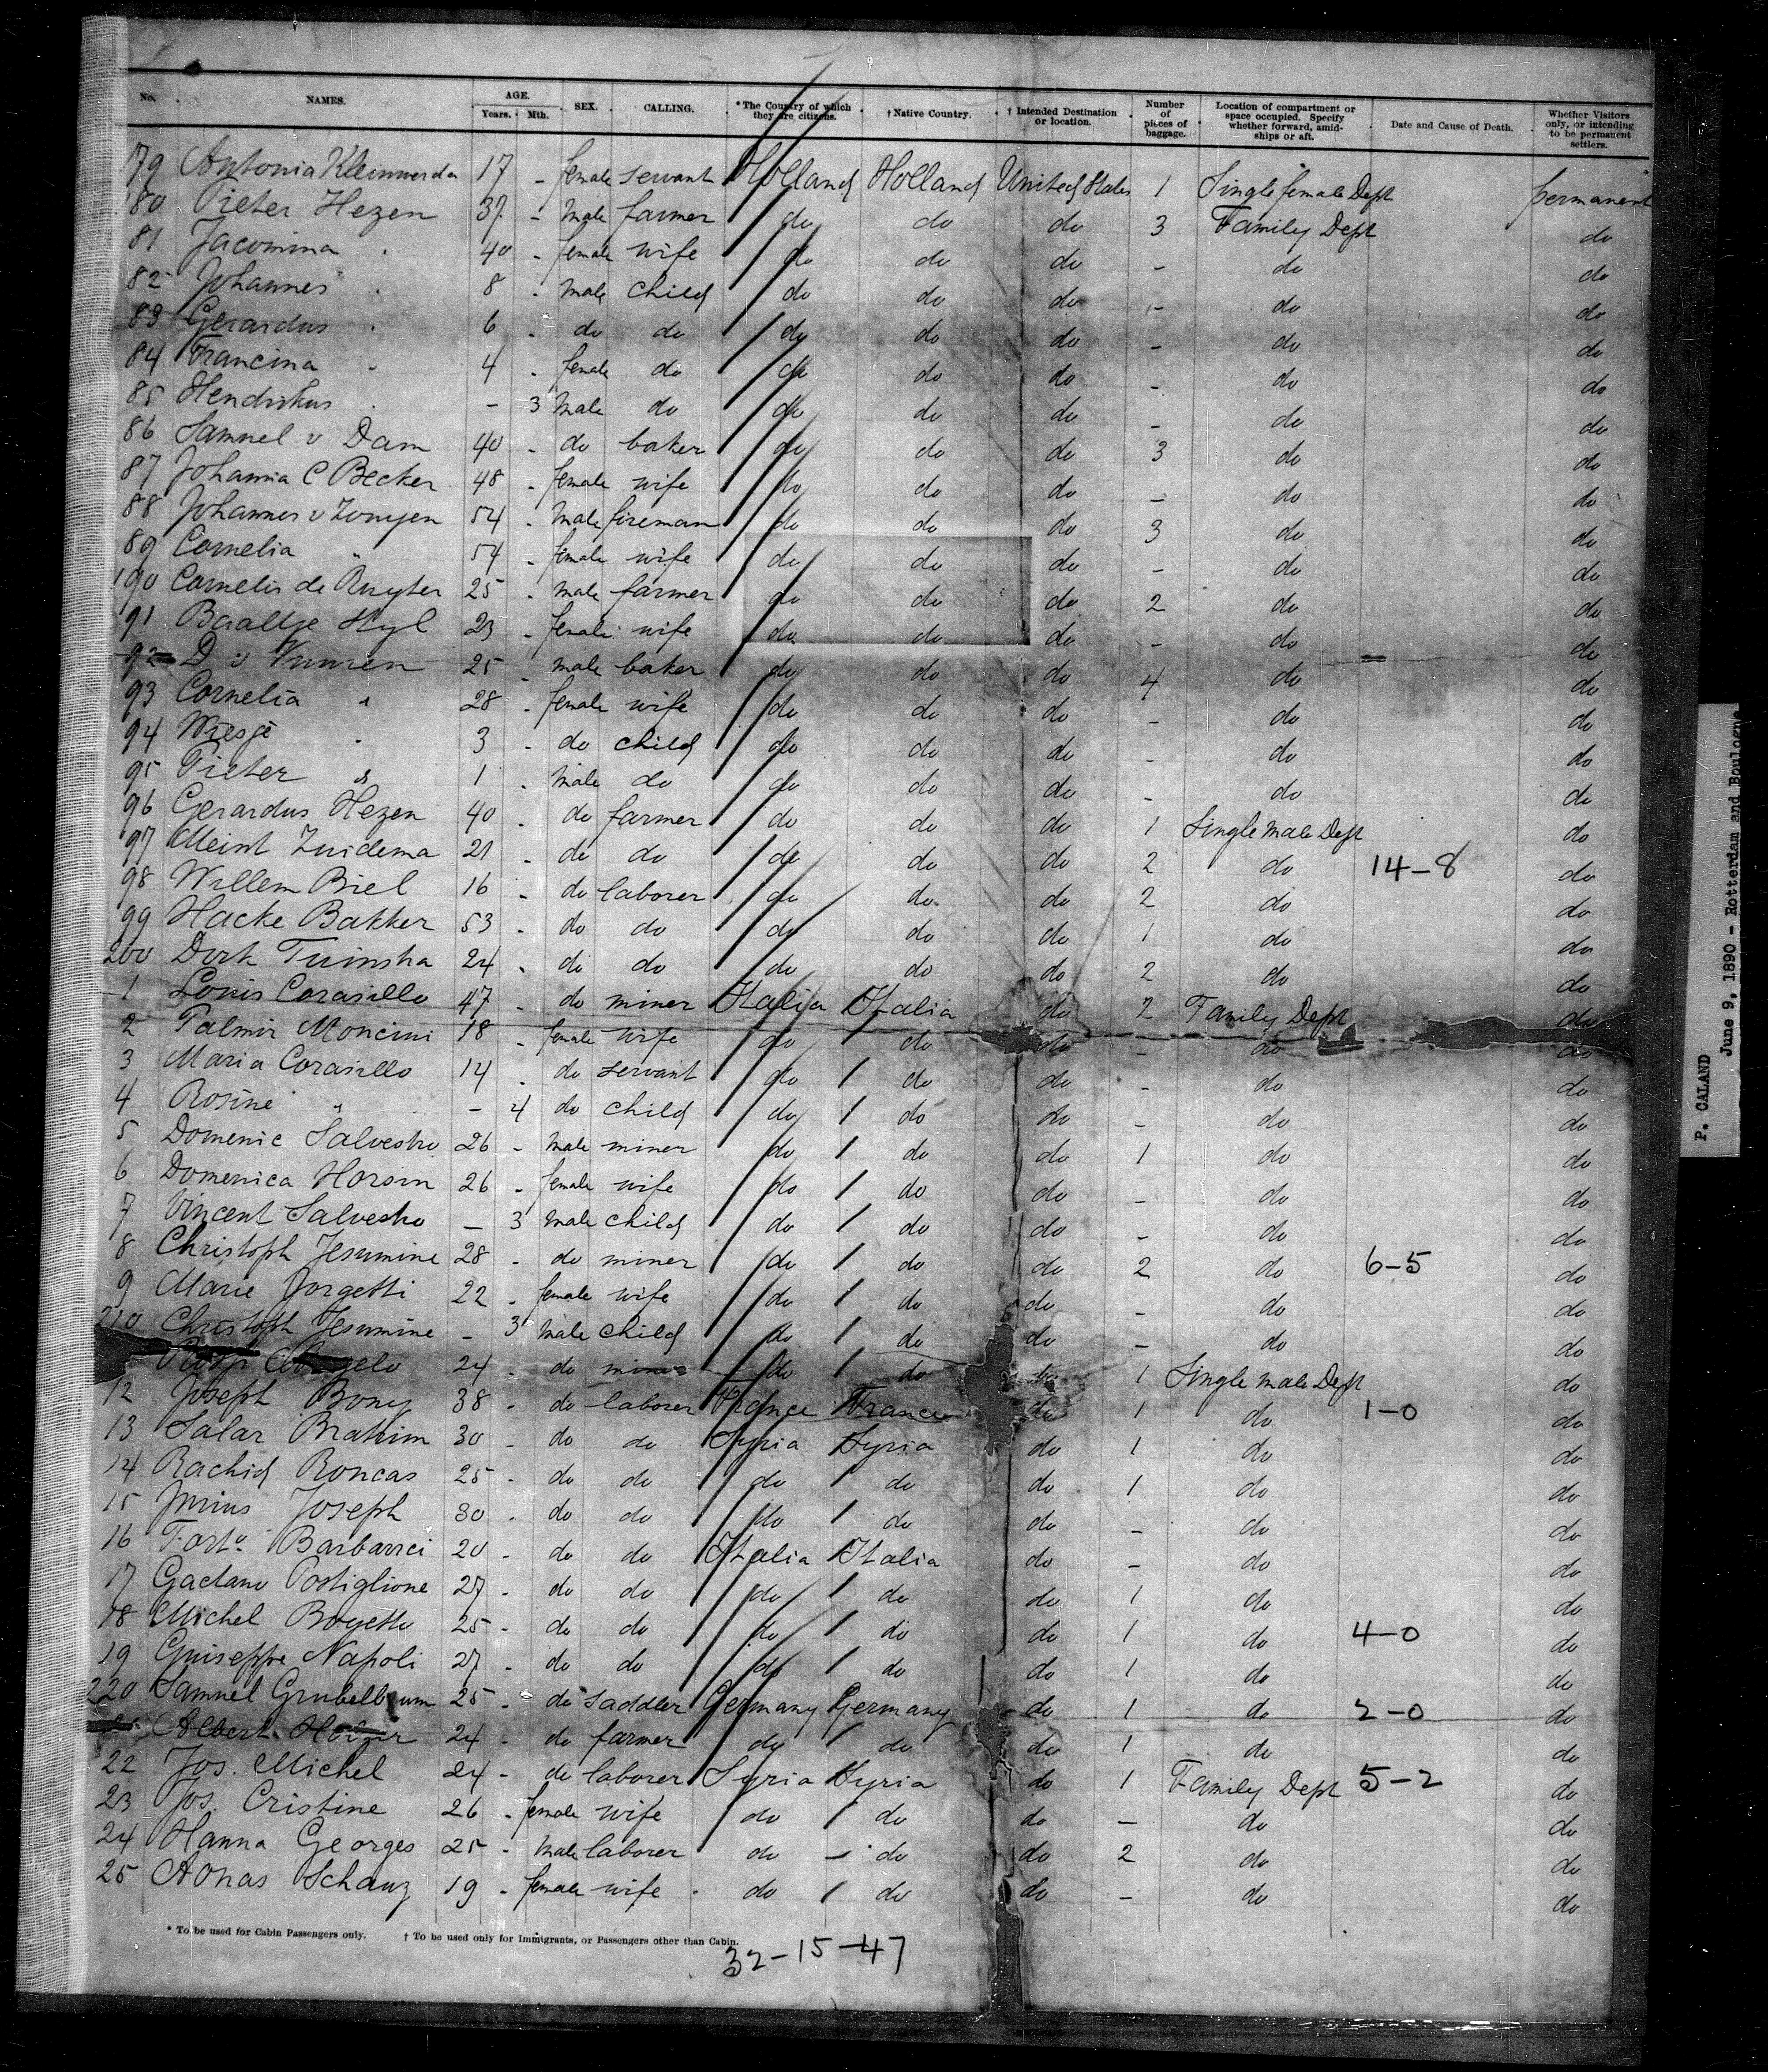 No. NAMES. AGE. Years. Mth. SEX. CALLING. *The Country of which they are citizens. †Native Country. † Intended Destination or location. Number of pieces of baggage. Location of compartment or space occupied. Specify whether forward, amidships or aft. Date and Cause of Death. Whether Visitors only, or intending to be permanent settlers.
79 Antonia 17 - female servant Holland Holland United States 1 Single female Dept permanent
180 Pieter Hezen 37 - male farmer do do do 3 Family Dept do
81 Jacomina " 40 - female wife do do do - do do
82 Johannes " 8 - male child do do do - do do
83 Gerardus " 6 - do do do do do - do do
84 Francina " 4 - female do do do do - do do
85 Hendrikus " - 3 male do do do do - do do
86 Samuel v Dam 40 - do baker do do do 3 do do
87 Johanna C Becker 48 - female wife do do do - do do
88 Johannes v 54 - male fireman do do do 3 do do
89 Cornelia " 54 - female wife do do do - do do
190 Cornelis de Ruyter 25 - male farmer do do do 2 do do
91 Baaltje Hyl 23 - female wife do do do - do do
92 D v 25 - male baker do do do 4 do do
93 Cornelia " 28 - female wife do do do - do do
94 Wiesje " 3 - do child do do do - do do
95 Pieter " 1 - male do do do do - do do
96 Gerardus Hezen 40 - do farmer do do do 1 Single male Dept do
97 Meint Zuidema 21 - do do do do do 2 do 14-8 do
98 Willem Biel 16 - do laborer do do do 2 do do
99 Hacke Bakker 53 - do do do do do 1 do do
200 Dirk Tuinstra 24 - do do do do do 2 do do
1 Louis Corasillo 47 - do miner Italia Italia do 2 Family Dept do
2 Palmir Moncini 18 - female wife do do do - do do
3 Maria Corasillo 14 - do servant do do do - do do
4 Rosine " - 4 do child do do do - do do
5 Domenic Salvestro 26 - male miner do do do 1 do do
6 Domenica Horsin 26 - female wife do do do - do do
7 Vincent Salvestro - 3 male child do do do - do do
8 Christoph Jesumine 28 - do miner do do do 2 do 6-5 do
9 Marie Jorgetti 22 - female wife do do do - do do
210 Christoph Jesumine - 3 male child do do do - do do
24 - do miner do do do 1 Single male Dept do
12 Joseph Bony 38 - do laborer France France do 1 do 1-0 do
13 Salar Brahim 30 - do do Syria Syria do 1 do do
14 Rachid Roncas 25 - do do do do do 1 do do
15 Joseph 30 - do do do do do - do do
16 Forto Barbarici 20 - do do Italia Italia do - do do
17 Gaetano Postiglione 27 - do do do do do 1 do do
18 Michel Bogetto 25 - do do do do do 1 do 4-0 do
19 Guiseppe Napoli 27 - do do do do do 1 do do
220 Samuel Grubelbaum 25 - do saddler Germany Germany do 1 do 2-0 do
Albert Holzer 24 - do farmer do do do 1 do do
22 Jos. Michel 24 - do laborer Syria Syria do 1 Family Dept 5-2 do
23 Jos. Cristine 26 - female wife do do do - do do
24 Hanna Georges 25 - male laborer do do do 2 do do
25 Schauz 19 - female wife do do do - do do
* To be used for Cabin Passengers only. † To be used only for Immigrants, or Passengers other than Cabin.
32-15-47
P. CALAND
June 9, 1890 - Rotterdam and Boulogne